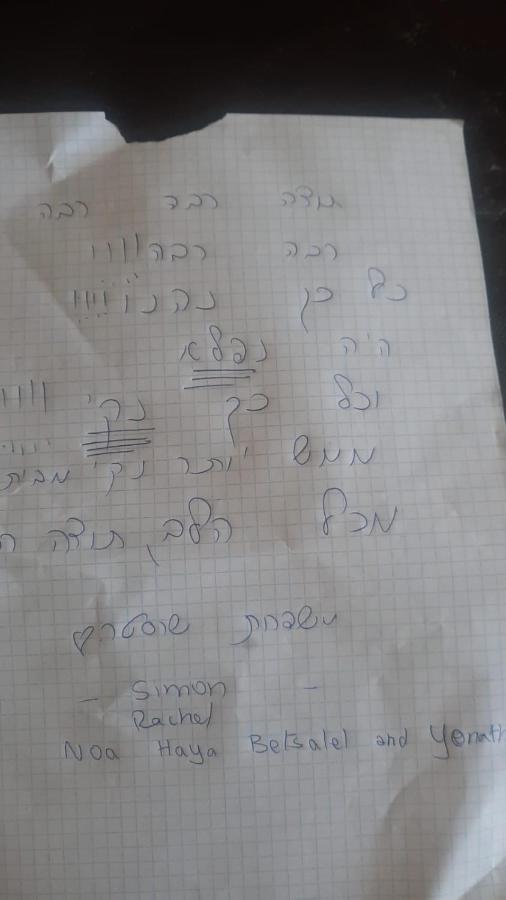 תודה רבה רבה
רבה רבה!!!!
כל כך נהננו!!!!
היה נפלא
וכל כך נקי !!!!
ממש יותר נקי מבית
מכל הלב, תודה ה
משפחת
- Simon -
Rachel
Noa Haya Betsalel and Yonath